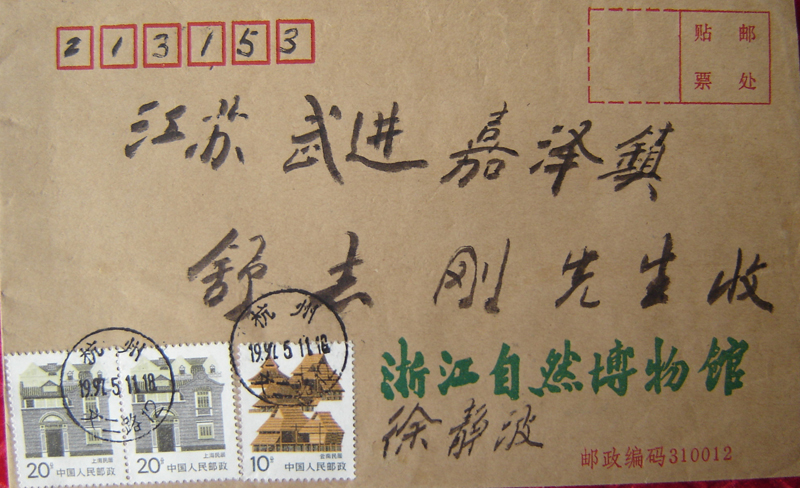 213153
贴邮
票处
江苏 武进 嘉泽鎮
舒志刚先生收
杭州
1992.5.11.18
杭州
1992.5.11.18
浙江自然博物馆
徐静波
邮政编码310012
上海民居
20分 中国人民邮政
上海民居
20分 中国人民邮政
云南民居
10分 中国人民邮政